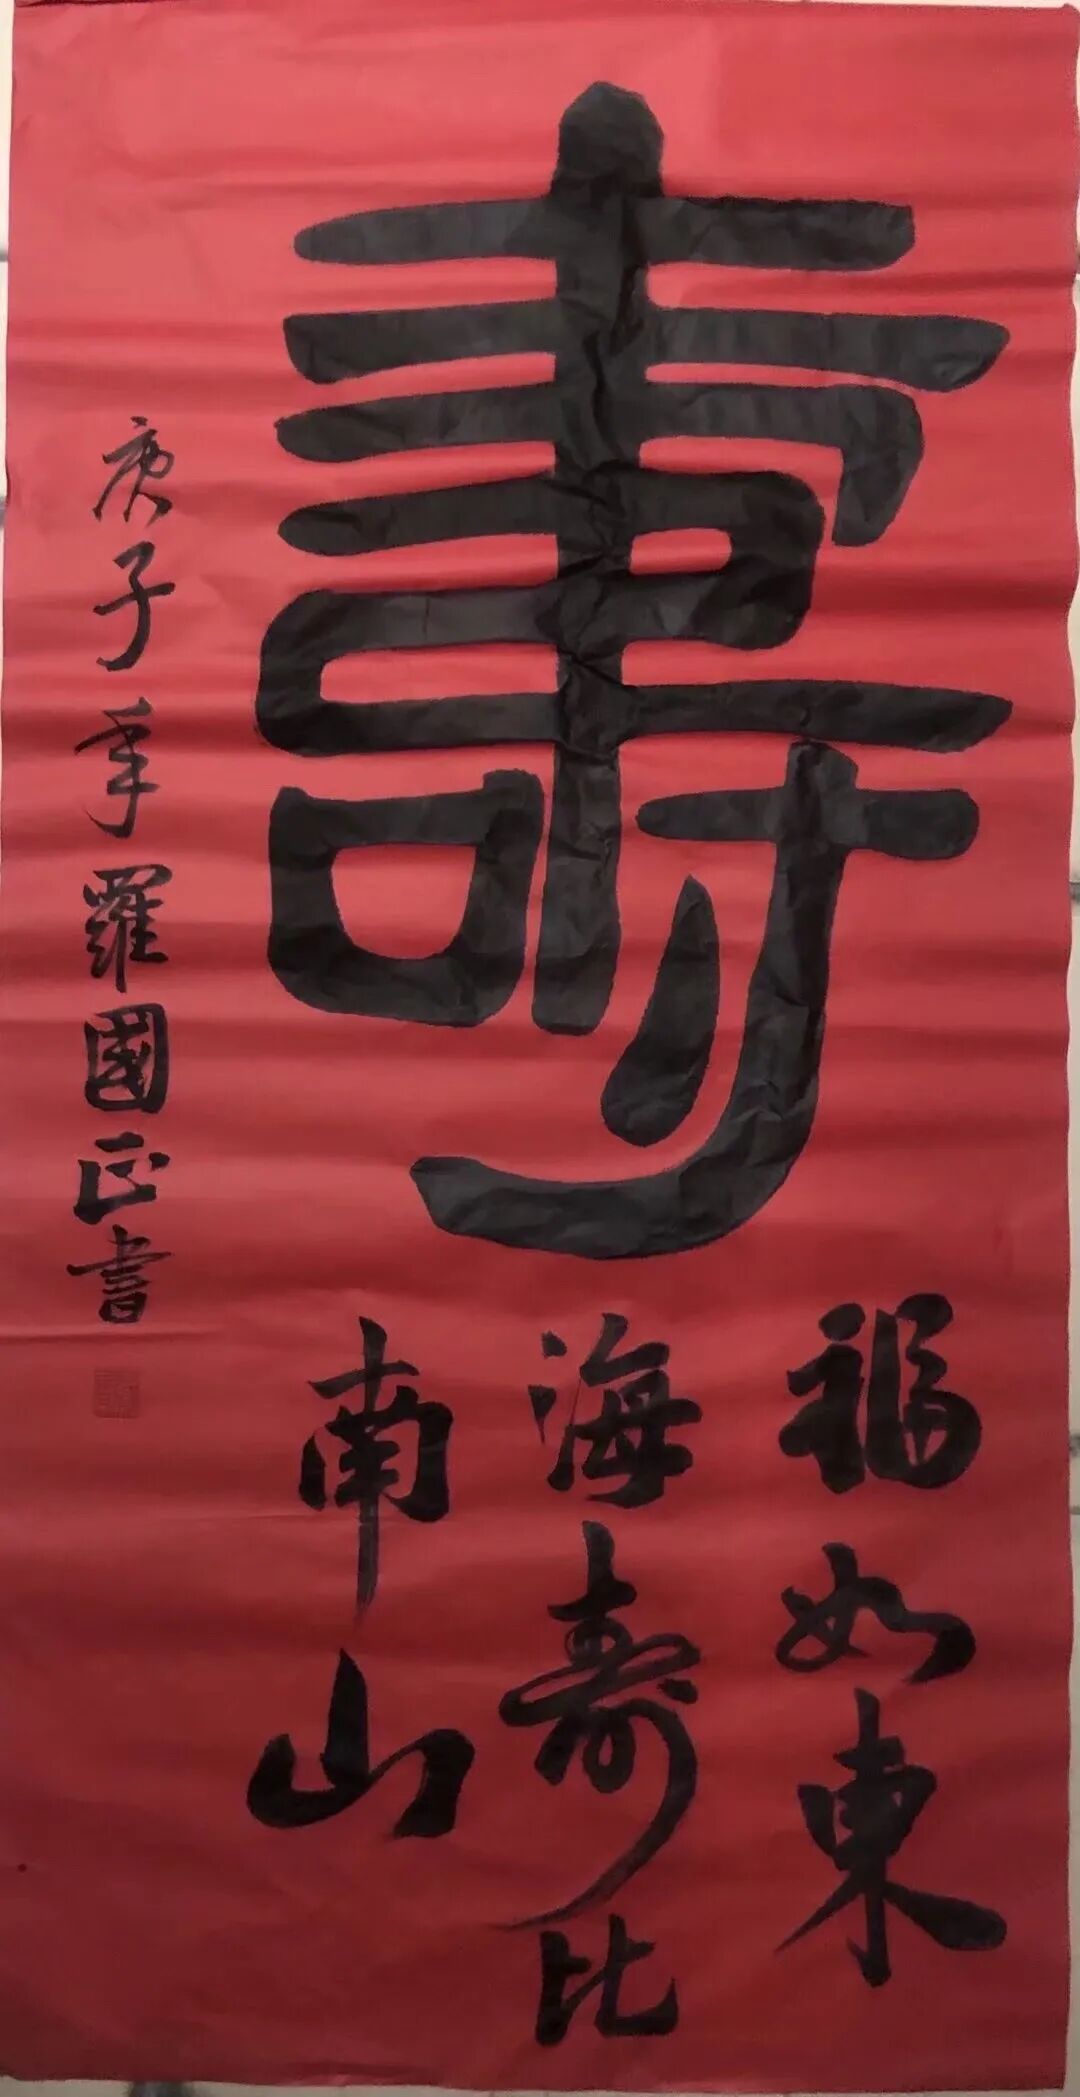 壽
福如東
海壽比
南山
庚子年羅國正書